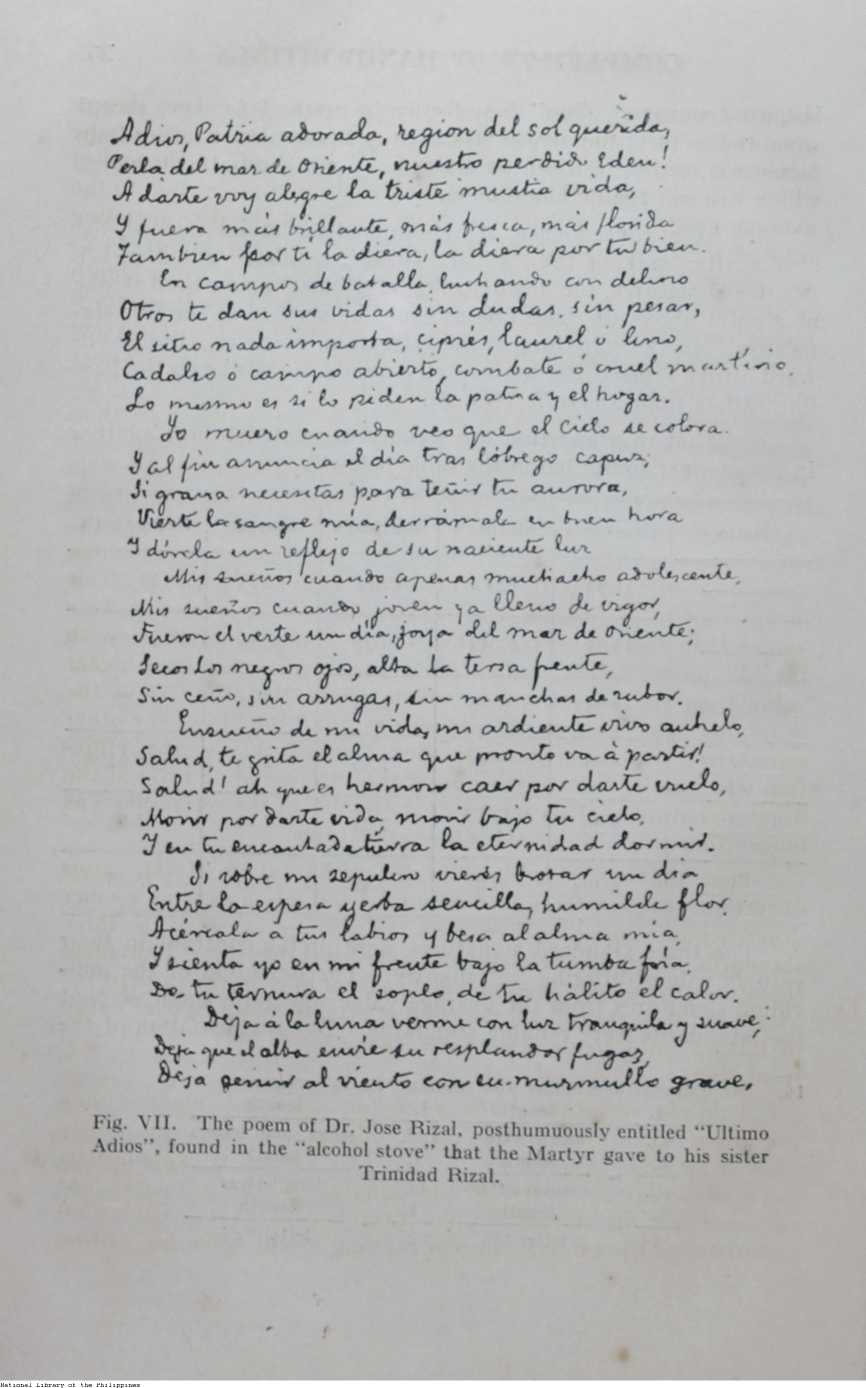 Adios, Patria adorada, region del sol querida,
Perla del mar de Oriente, nuestro perdido Eden!
A darte voy alegre la triste mustia vida,
Y fuera más brillante, más fresca, más florida
Tambien por tí la diera, la diera por tu bien.
En campos de batalla, luchando con delirio
Otros te dan sus vidas sin dudas, sin pesar,
El sitio nada importa, ciprés, laurel ó lirio,
Cadalso ó campo abierto, combate ó cruel martirio,
Lo mismo es si lo piden la patria y el hogar.
Yo muero cuando veo que el cielo se colora
Y al fin anuncia el día tras lóbrego capuz;
Si grana necesitas para teñir tu aurora,
Vierte la sangre mía, derrámala en buen hora
Y dórela un reflejo de su naciente luz
Mis sueños cuando apenas muchacho adolescente,
Mis sueños cuando joven ya lleno de vigor,
Fueron el verte un día, joya del mar de Oriente;
Secos los negros ojos, alta la tersa frente,
Sin ceño, sin arrugas, sin manchas de rubor.
Ensueño de mi vida, mi ardiente vivo anhelo,
Salud, te grita el alma que pronto va á partir!
Salud! ah que es hermoso caer por darte vuelo,
Morir por darte vida, morir bajo tu cielo,
Y en tu encantada tierra la eternidad dormir.
Si sobre mi sepulcro vieres brotar un día
Entre la espesa yerba sencilla, humilde flor,
Acércala a tus labios y besa al alma mía,
Y sienta yo en mi frente bajo la tumba fría,
De tu ternura el soplo, de tu hálito el calor.
Deja á la luna verme con luz tranquila y suave;
Deja que el alba envíe su resplandor fugaz,
Deja gemir al viento con su murmullo grave,
Fig. VII. The poem of Dr. Jose Rizal, posthumuously entitled “Ultimo
Adios”, found in the “alcohol stove” that the Martyr gave to his sister
Trinidad Rizal.
National Library of the Philippines